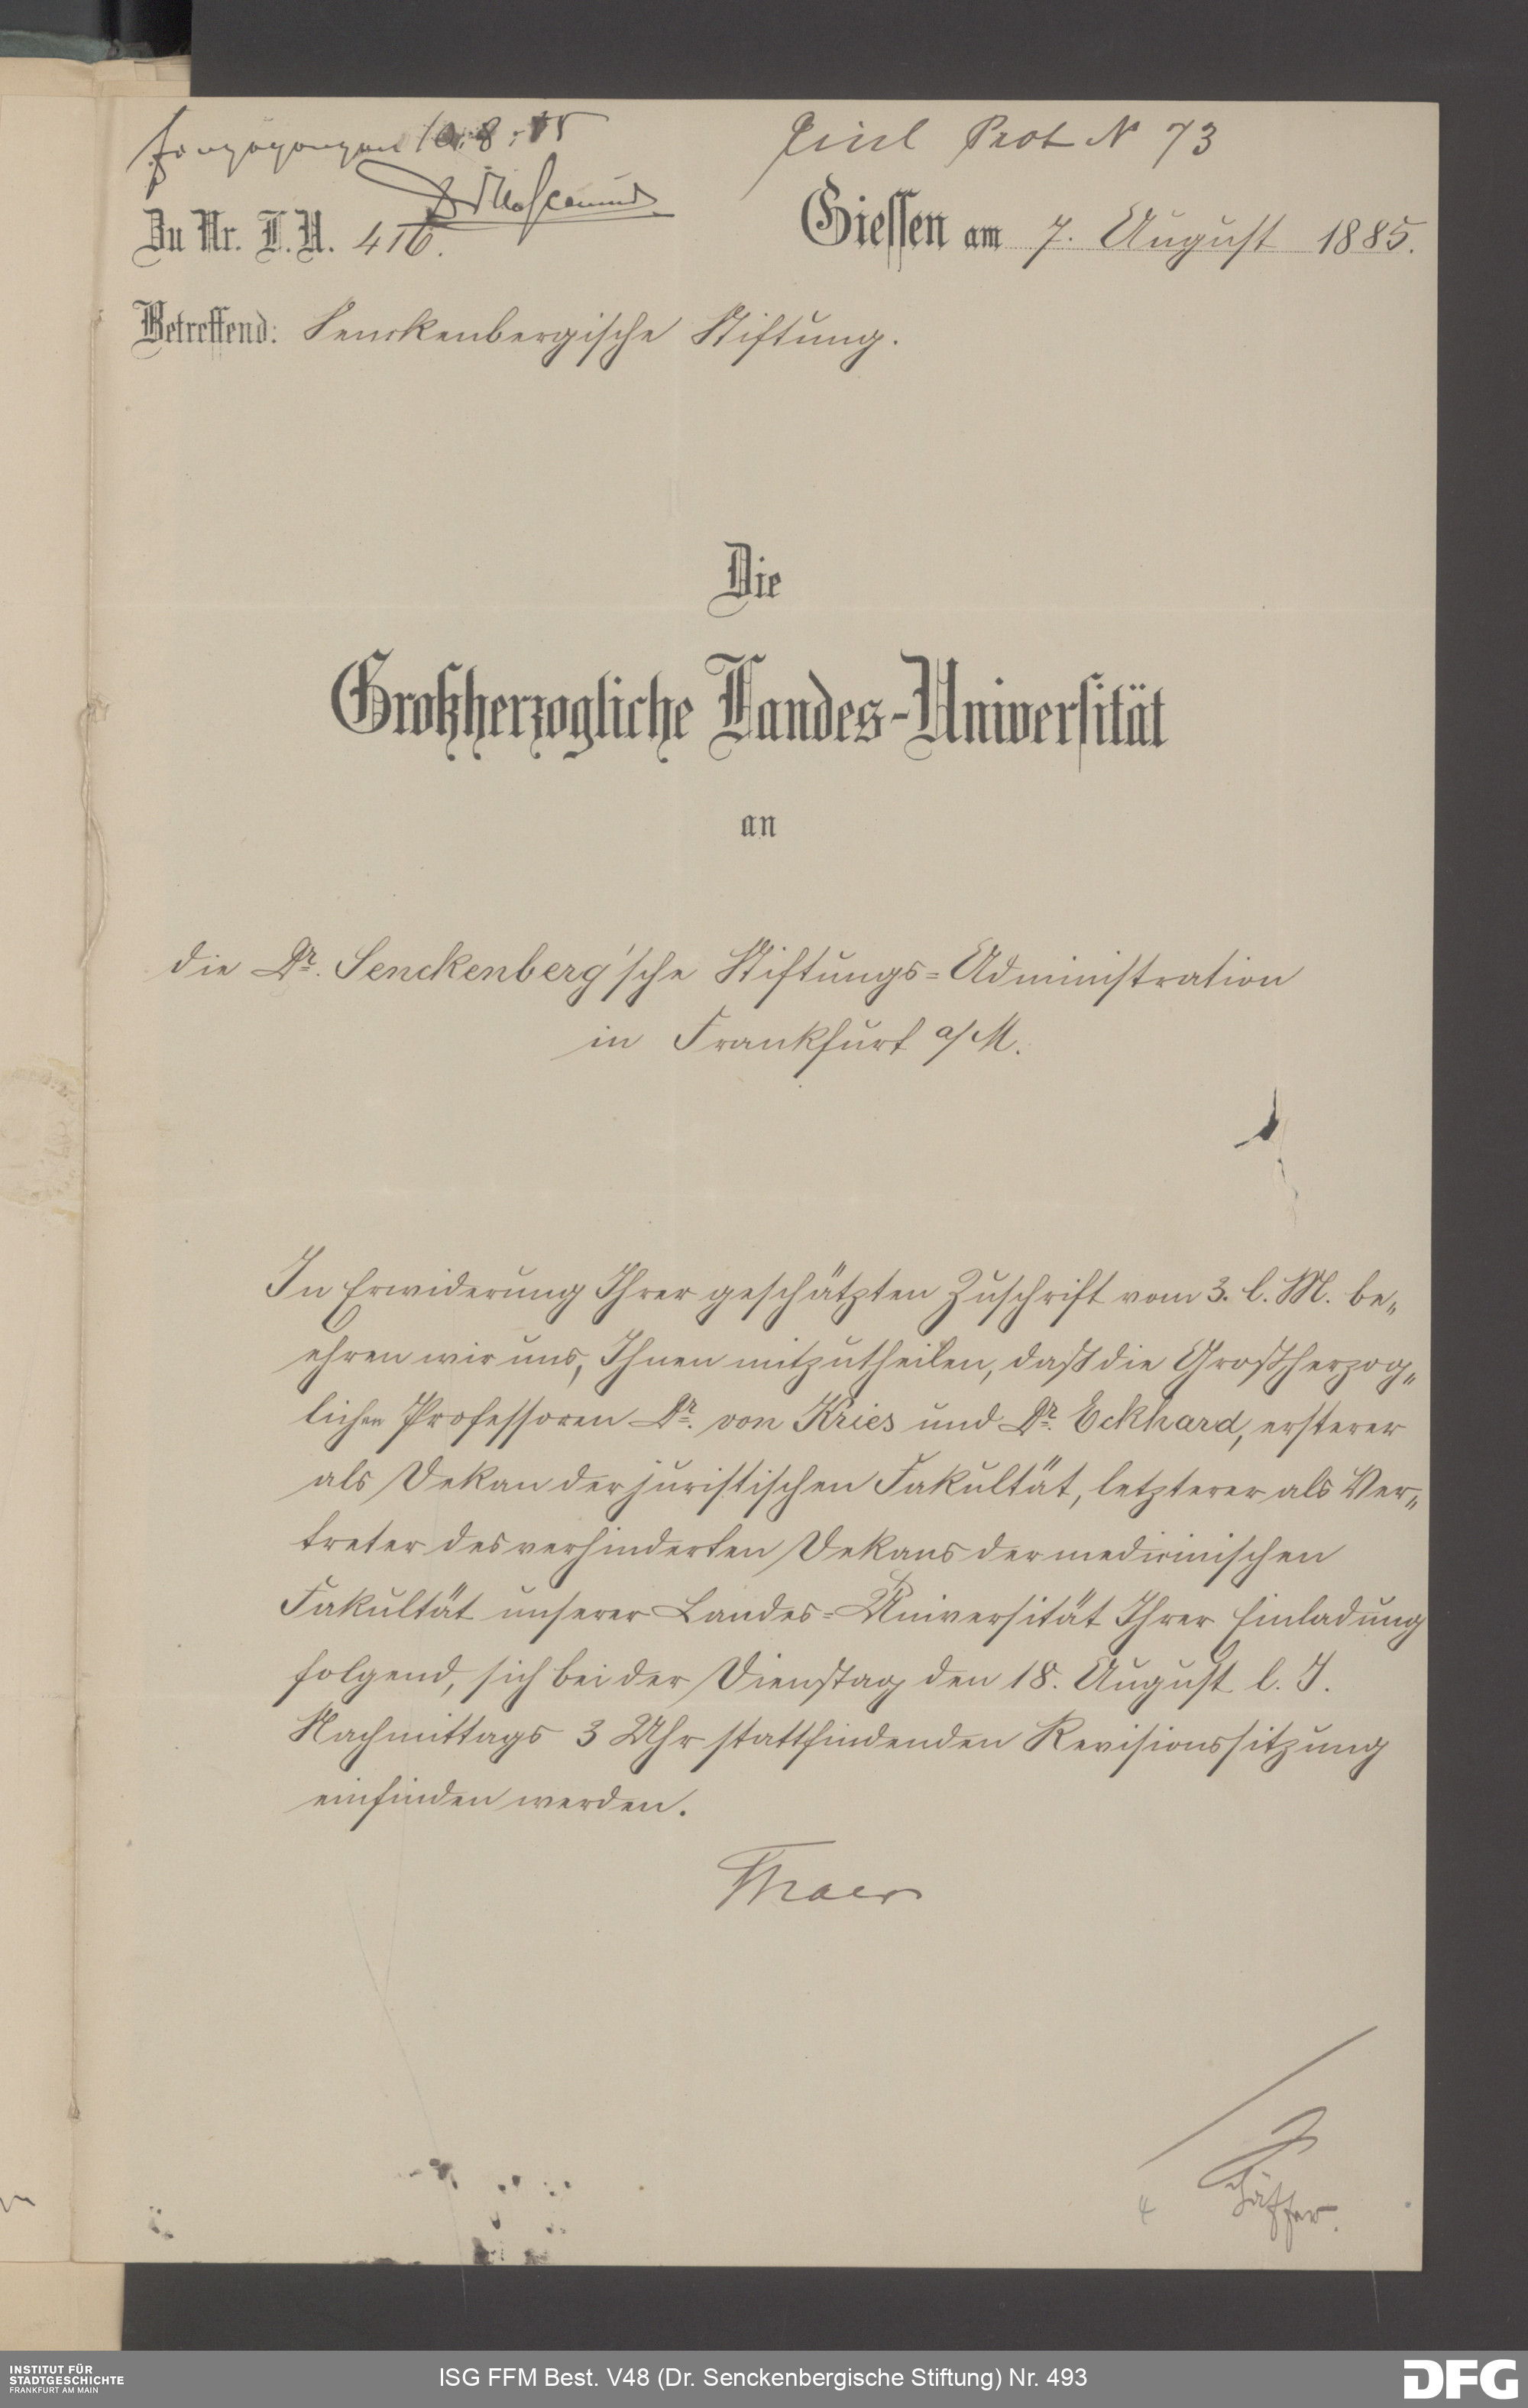 eingegangen 10.8.85
Einl Prot N 73
Zu Nr. L. U. 416.
Giessen am 7. August 1885.
Betreffend: Senckenbergische Stiftung.
Die
Großherzogliche Landes-Universität
an
die Dr. Senckenberg'sche Stiftungs=Administration
in Frankfurt a/M.
In Erwiderung Ihrer geschätzten Zuschrift vom 3. l. M. be„
ehren wir uns, Ihnen mitzutheilen, daß die Großherzog„
lichen Professoren Dr. von Kries und Dr. Eckhard, ersterer
als Dekan der juristischen Fakultät, letzterer als Ver„
treter des verhinderten Dekans der medicinischen
Fakultät unserer Landes=Universität Ihrer Einladung
folgend, sich bei der Dienstag den 18. August l. J.
Nachmittags 3 Uhr stattfindenden Revisionssitzung
einfinden werden.
Thaer
Schäffer.
INSTITUT FÜR
STADTGESCHICHTE
FRANKFURT AM MAIN
ISG FFM Best. V48 (Dr. Senckenbergische Stiftung) Nr. 493
DFG